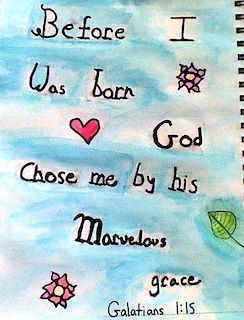 Before I
Was born
God
Chose me by his
Marvelous
grace
Galatians 1:15